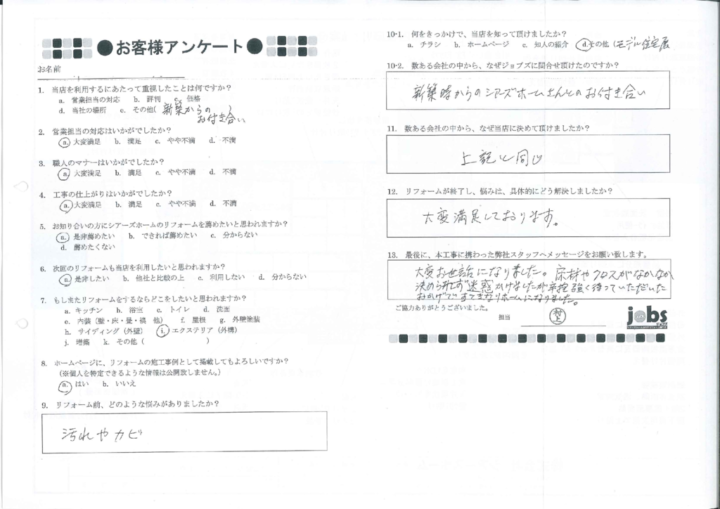 お客様アンケート
お名前
1. 当店を利用するにあたって重視したことは何ですか？
a. 営業担当の対応 b. 評判 c. 価格
d. 当社の場所 e. その他( 新築からのお付き合い )
2. 営業担当の対応はいかがでしたか？
a. 大変満足 b. 満足 c. やや不満 d. 不満
3. 職人のマナーはいかがでしたか？
a. 大変満足 b. 満足 c. やや不満 d. 不満
4. 工事の仕上がりはいかがでしたか？
a. 大変満足 b. 満足 c. やや不満 d. 不満
5. お知り合いの方にシアーズホームのリフォームを薦めたいと思われますか？
a. 是非薦めたい b. できれば薦めたい c. 分からない
d. 薦めたくない
6. 次回のリフォームも当店を利用したいと思われますか？
a. 是非したい b. 他社と比較の上 c. 利用しない d. 分からない
7. もしまたリフォームをするならどこをしたいと思われますか？
a. キッチン b. 浴室 c. トイレ d. 洗面
e. 内装（壁・床・畳・襖 他） f. 屋根 g. 外壁塗装
h. サイディング（外壁） i. エクステリア（外構）
j. 増築 k. その他（ ）
8. ホームページに、リフォームの施工事例として掲載してもよろしいですか？
（※個人を特定できるような情報は公開致しません。）
a. はい b. いいえ
9. リフォーム前、どのような悩みがありましたか？
汚れやカビ
10-1. 何をきっかけで、当店を知って頂けましたか？
a. チラシ b. ホームページ c. 知人の紹介 d. その他（モデル住宅展
10-2. 数ある会社の中から、なぜジョブズに問合せ頂けたのですか？
新築時からのシアーズホームさんとのお付き合い
11. 数ある会社の中から、なぜ当店に決めて頂けましたか？
上記と同じ
12. リフォームが終了し、悩みは、具体的にどう解決しましたか？
大変満足しております。
13. 最後に、本工事に携わった弊社スタッフへメッセージをお願い致します。
大変お世話になりました。床材やクロスがなかなか
決められず迷惑かけましたが辛抱強く待っていただいた
おかげで ホームになりました。
ご協力ありがとうございました。
担当
jobs